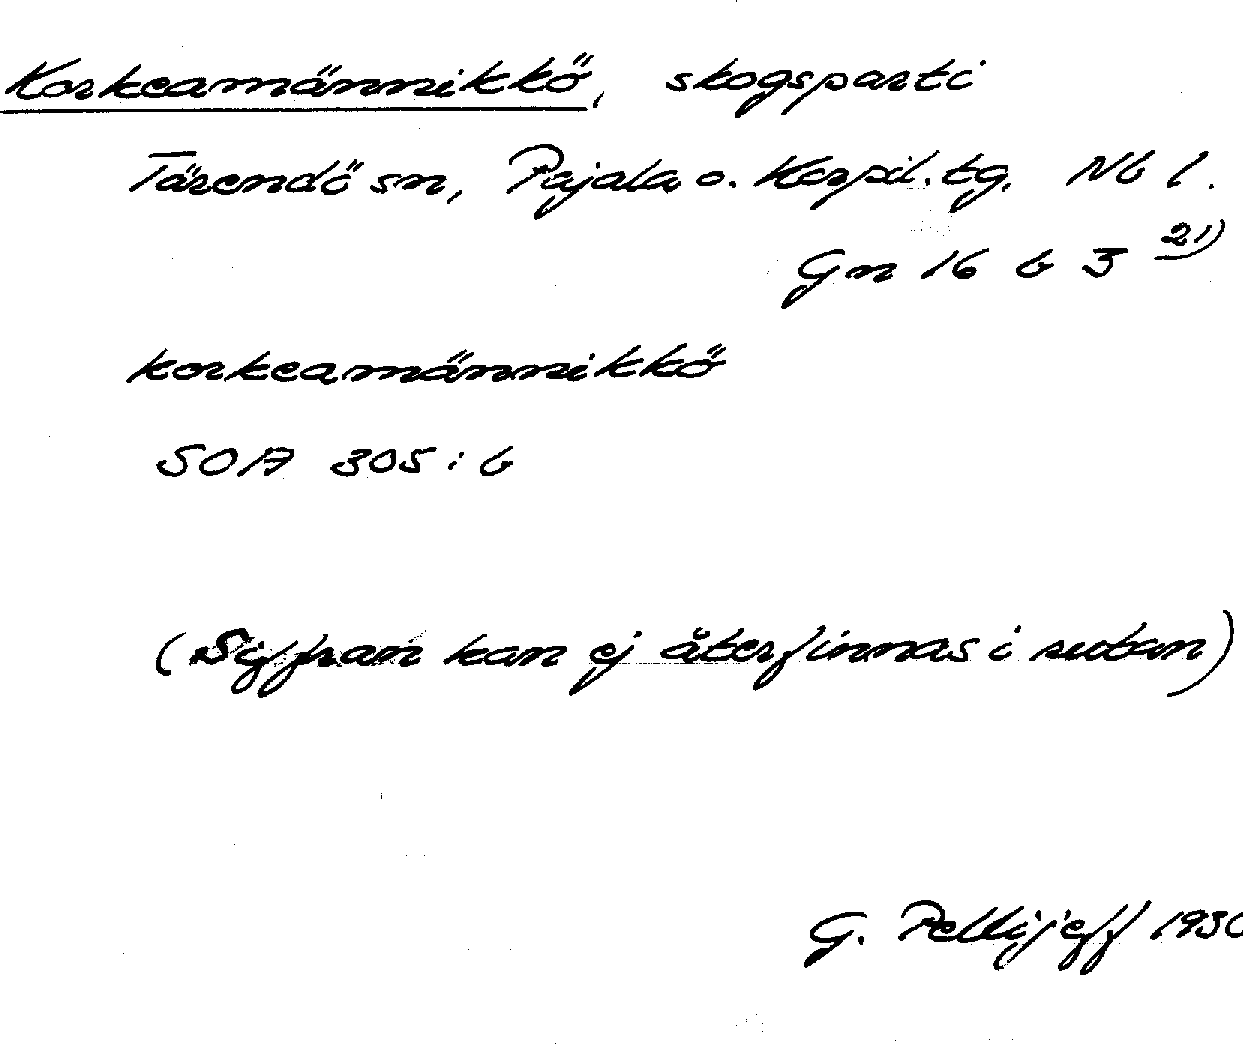 Korkeamännikkö, skogsparti
Tärendö sn, Pajala o. Korpil. tg. Nb l.
Gn 16 b 3 21)
korkeamännikkö
SOA 305: b
(Siffran kan ej återfinnas i rutan)
G. Pellijeff 1930